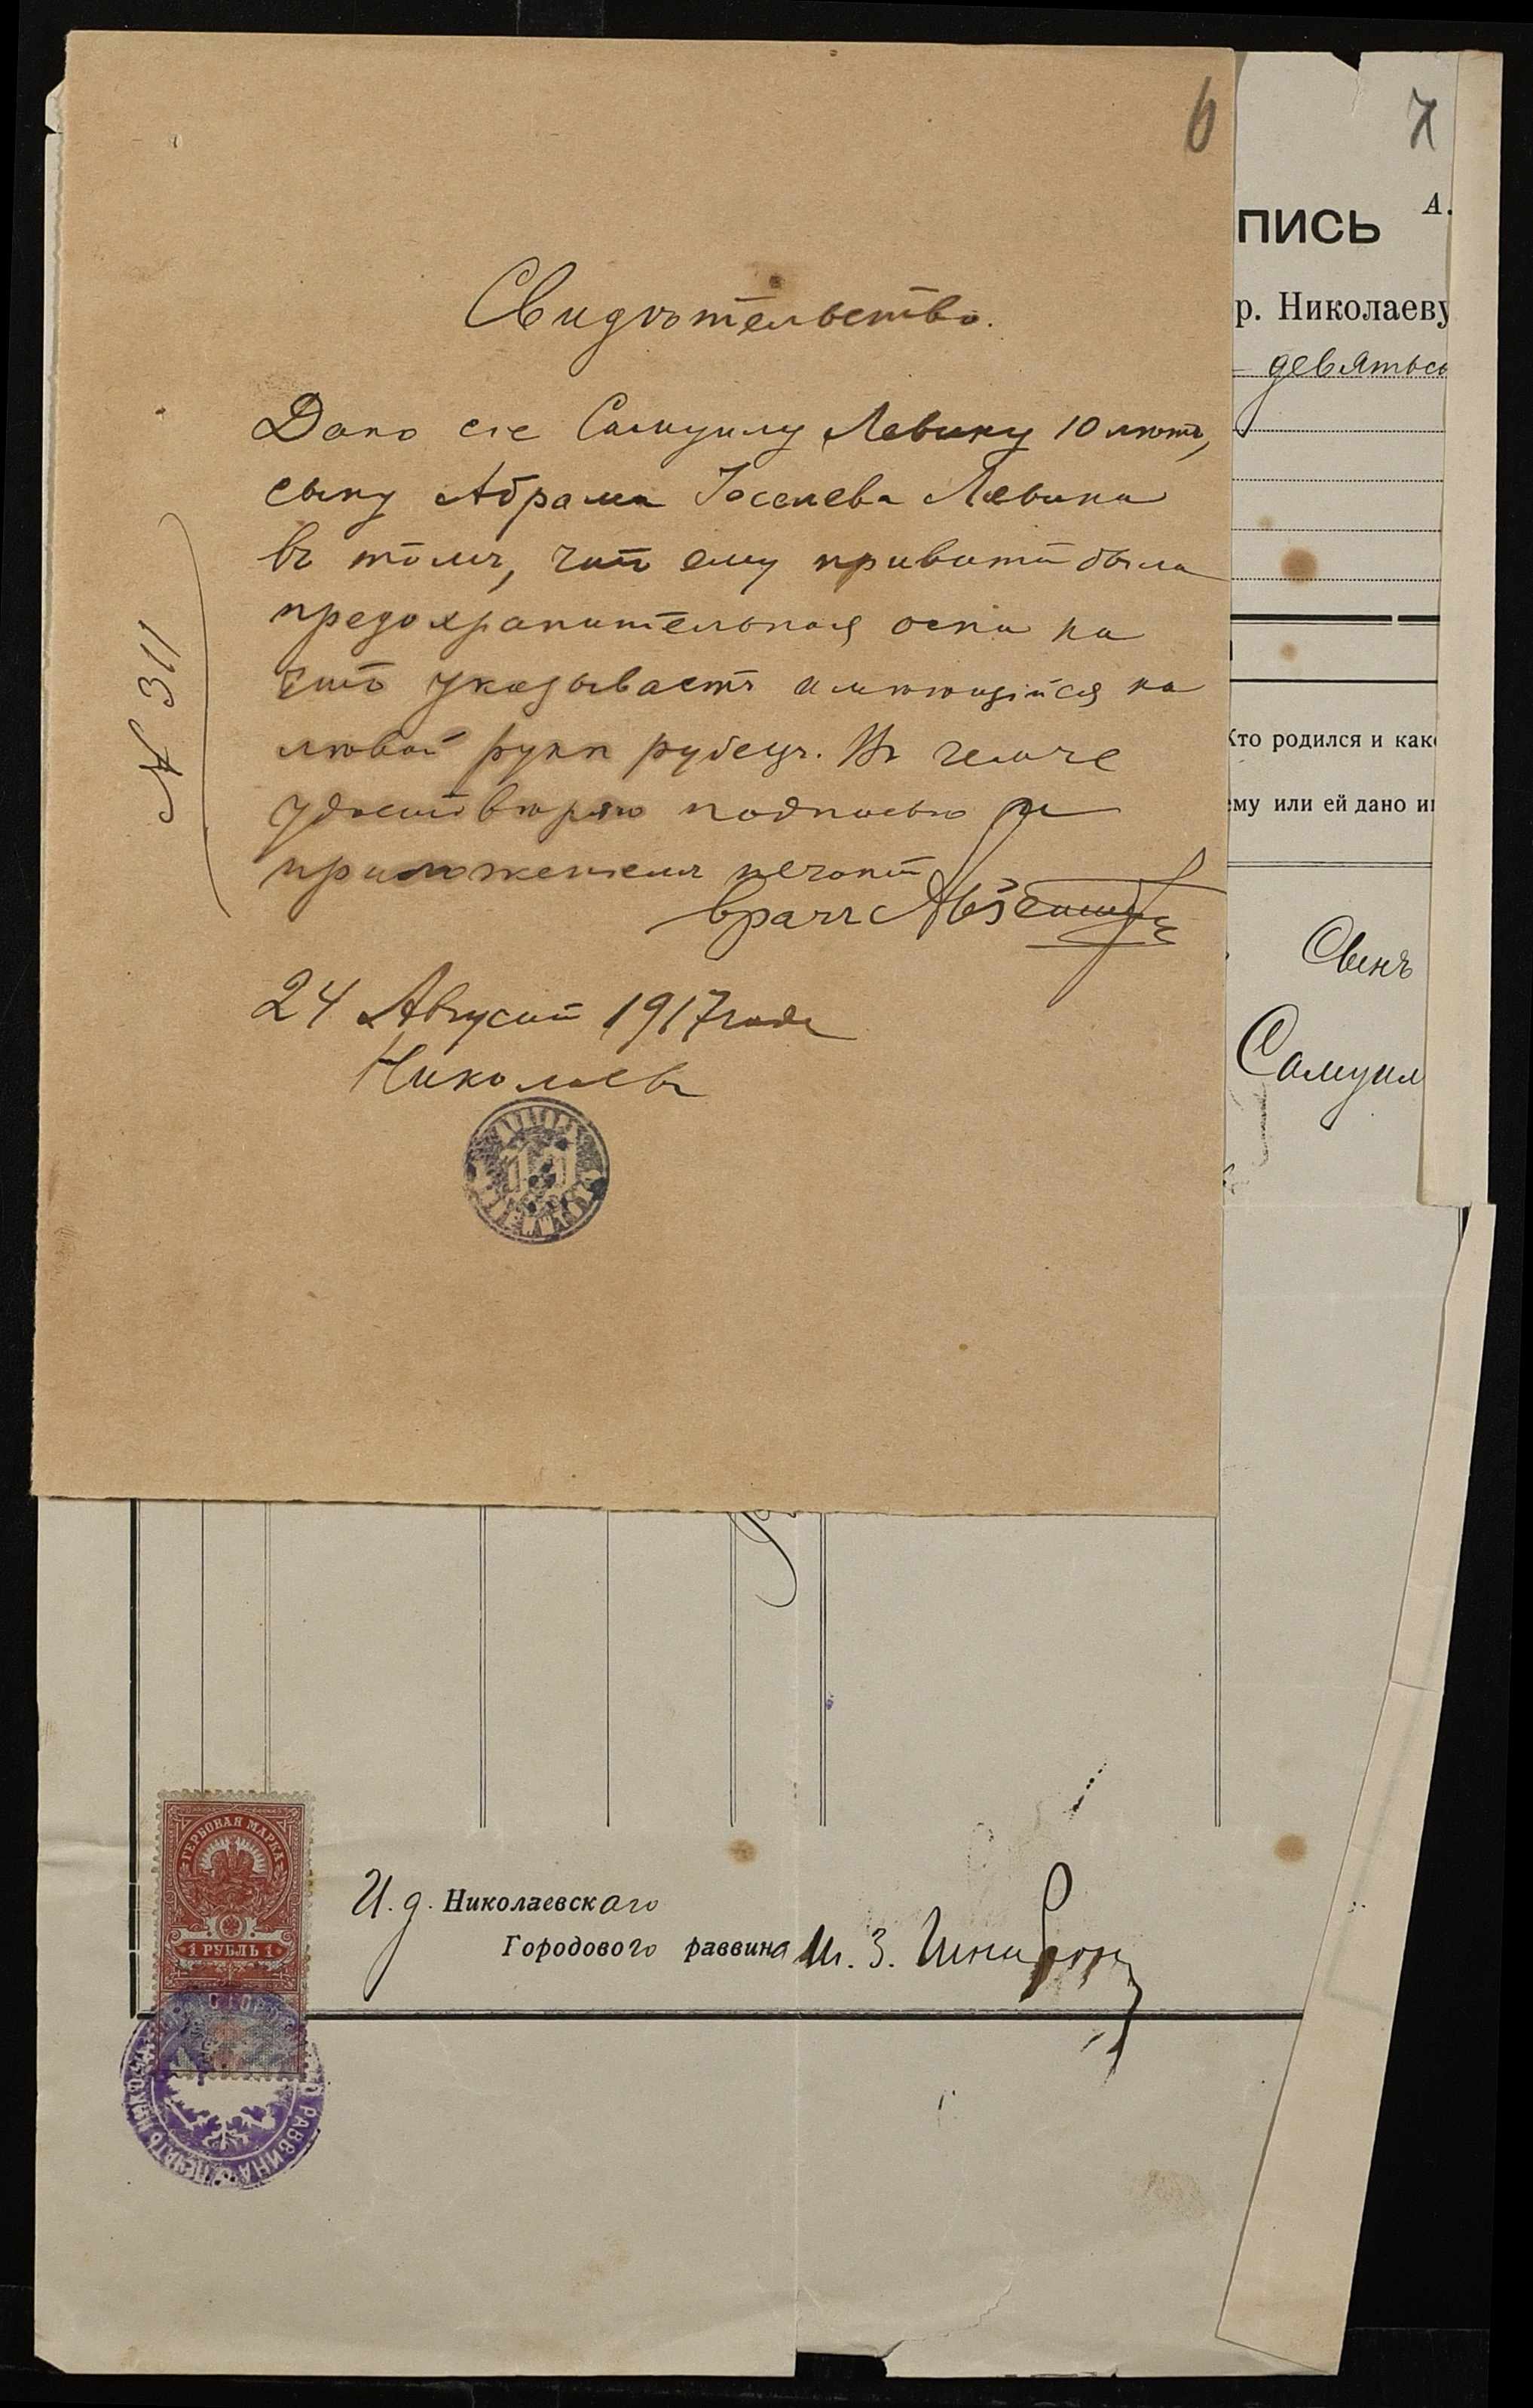 6
7
Свидѣтельство.
Дано сіе Самуилу Левину 10 лѣтъ,
сыну Абрама Іоселева Левина
въ томъ, что ему привита была
предохранительная оспа на
что указываетъ имѣющійся на
лѣвой рукѣ рубецъ. Въ чемъ
удостовѣряю подписью и
приложеніемъ печати
врачъ
24 Августа 1917 года
Николаевъ
N 311
ПИСЬ
А.
р. Николаеву
девятьсо
Кто родился и како
ему или ей дано и
Самуил
ГЕРБОВАЯ МАРКА
1 РУБЛЬ 1
И. д. Николаевскаго
Городового раввина
РАВВИНА